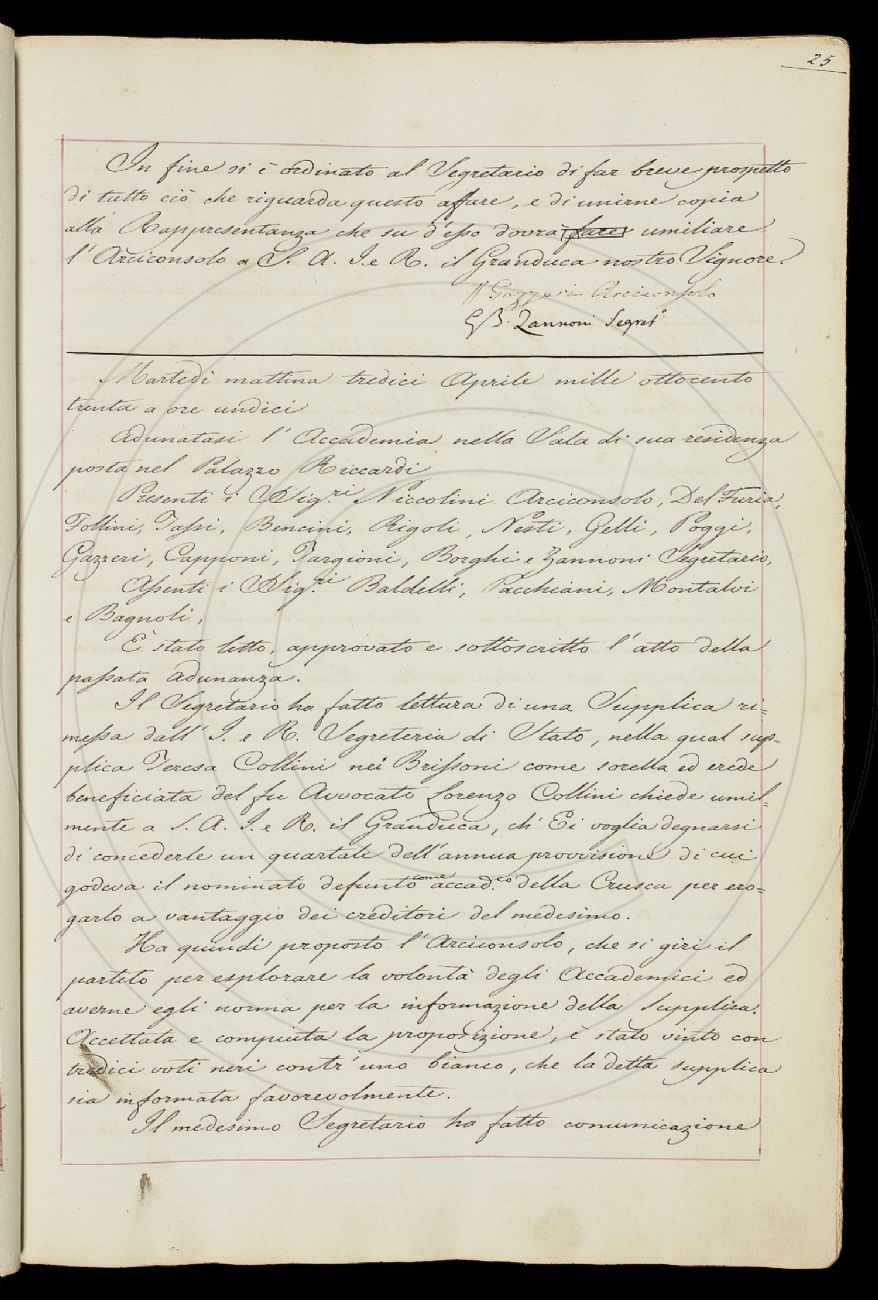 25
In fine si è ordinato al Segretario di far breve prospetto
di tutto ciò che riguarda questo affare, e di unirne copia
alla Rappresentanza che su d'esso dovrà umiliare
l'Arciconsolo a S. A. I. e R. il Granduca nostro Signore.
Arciconsolo
G B. Zannoni Segret.º
Martedì mattina tredici Aprile mille ottocento
trenta a ore undici
Adunatasi l'Accademia nella Sala di sua residenza
posta nel Palazzo Riccardi
Presenti i Sig.ri Niccolini Arciconsolo, Del Furia,
Follini, Tassi, Bencini, Rigoli, Nesti, Gelli, Poggi,
Gazzeri, Capponi, Targioni, Borghi e Zannoni Segretario,
Assenti i Sig.ri Baldelli, Pacchiani, Montalvi
e Bagnoli,
È stato letto, approvato e sottoscritto l'atto della
passata adunanza.
Il Segretario ha fatto lettura di una Supplica ri=
messa dall'I. e R. Segreteria di Stato, nella qual sup=
plica Teresa Collini nei Brissoni come sorella ed erede
beneficiata del fu Avvocato Lorenzo Collini chiede umil=
mente a S. A. I. e R. il Granduca, ch'Ei voglia degnarsi
di concederle un quartale dell'annua provvisione di cui
godeva il nominato defunto come accad.co della Crusca per ero=
garlo a vantaggio dei creditori del medesimo.
Ha quindi proposto l'Arciconsolo, che si giri il
partito per esplorare la volontà degli Accademici ed
averne egli norma per la informazione della supplica.
Accettata e compiuta la proposizione, è stato vinto con
tredici voti neri contr'uno bianco, che la detta supplica
sia informata favorevolmente.
Il medesimo Segretario ha fatto comunicazione